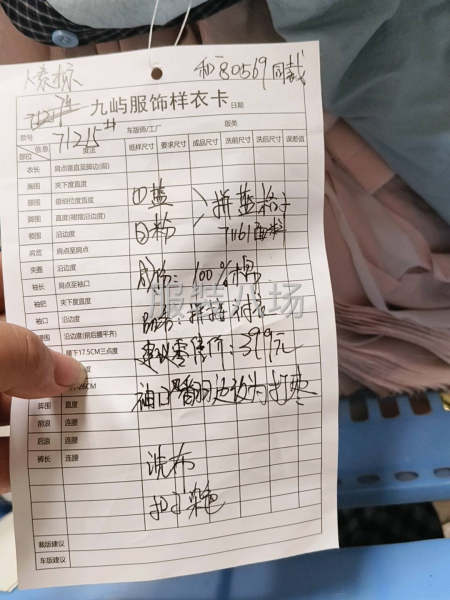 和80569同裁
九屿服饰样衣卡 日期
款号 71215# 车版师/工厂 版类
部位 信息 度法 纸样尺寸 要求尺寸 成品尺寸 洗前尺寸 洗后尺寸 误差值
衣长 肩点垂直至脚边(前)
胸围 夹下度直度
腰围 直度
①蓝 拼蓝格子
②粉 71161面料
沿边度
肩点至肩点
夹圈 沿边度
成份:100%棉
袖长 肩点至袖口
袖肥 夹下度直度
品名:拼接衬衣
袖口 沿边度
沿边度(前后腰平齐)
建议零售价:399元
腰下17.5CM三点度
CM
袖口翻边改为打枣
脾围 直度
前浪 连腰
后浪 连腰
裤长 连腰
洗布
扣子染色
裁版建议
车版建议
服装人场